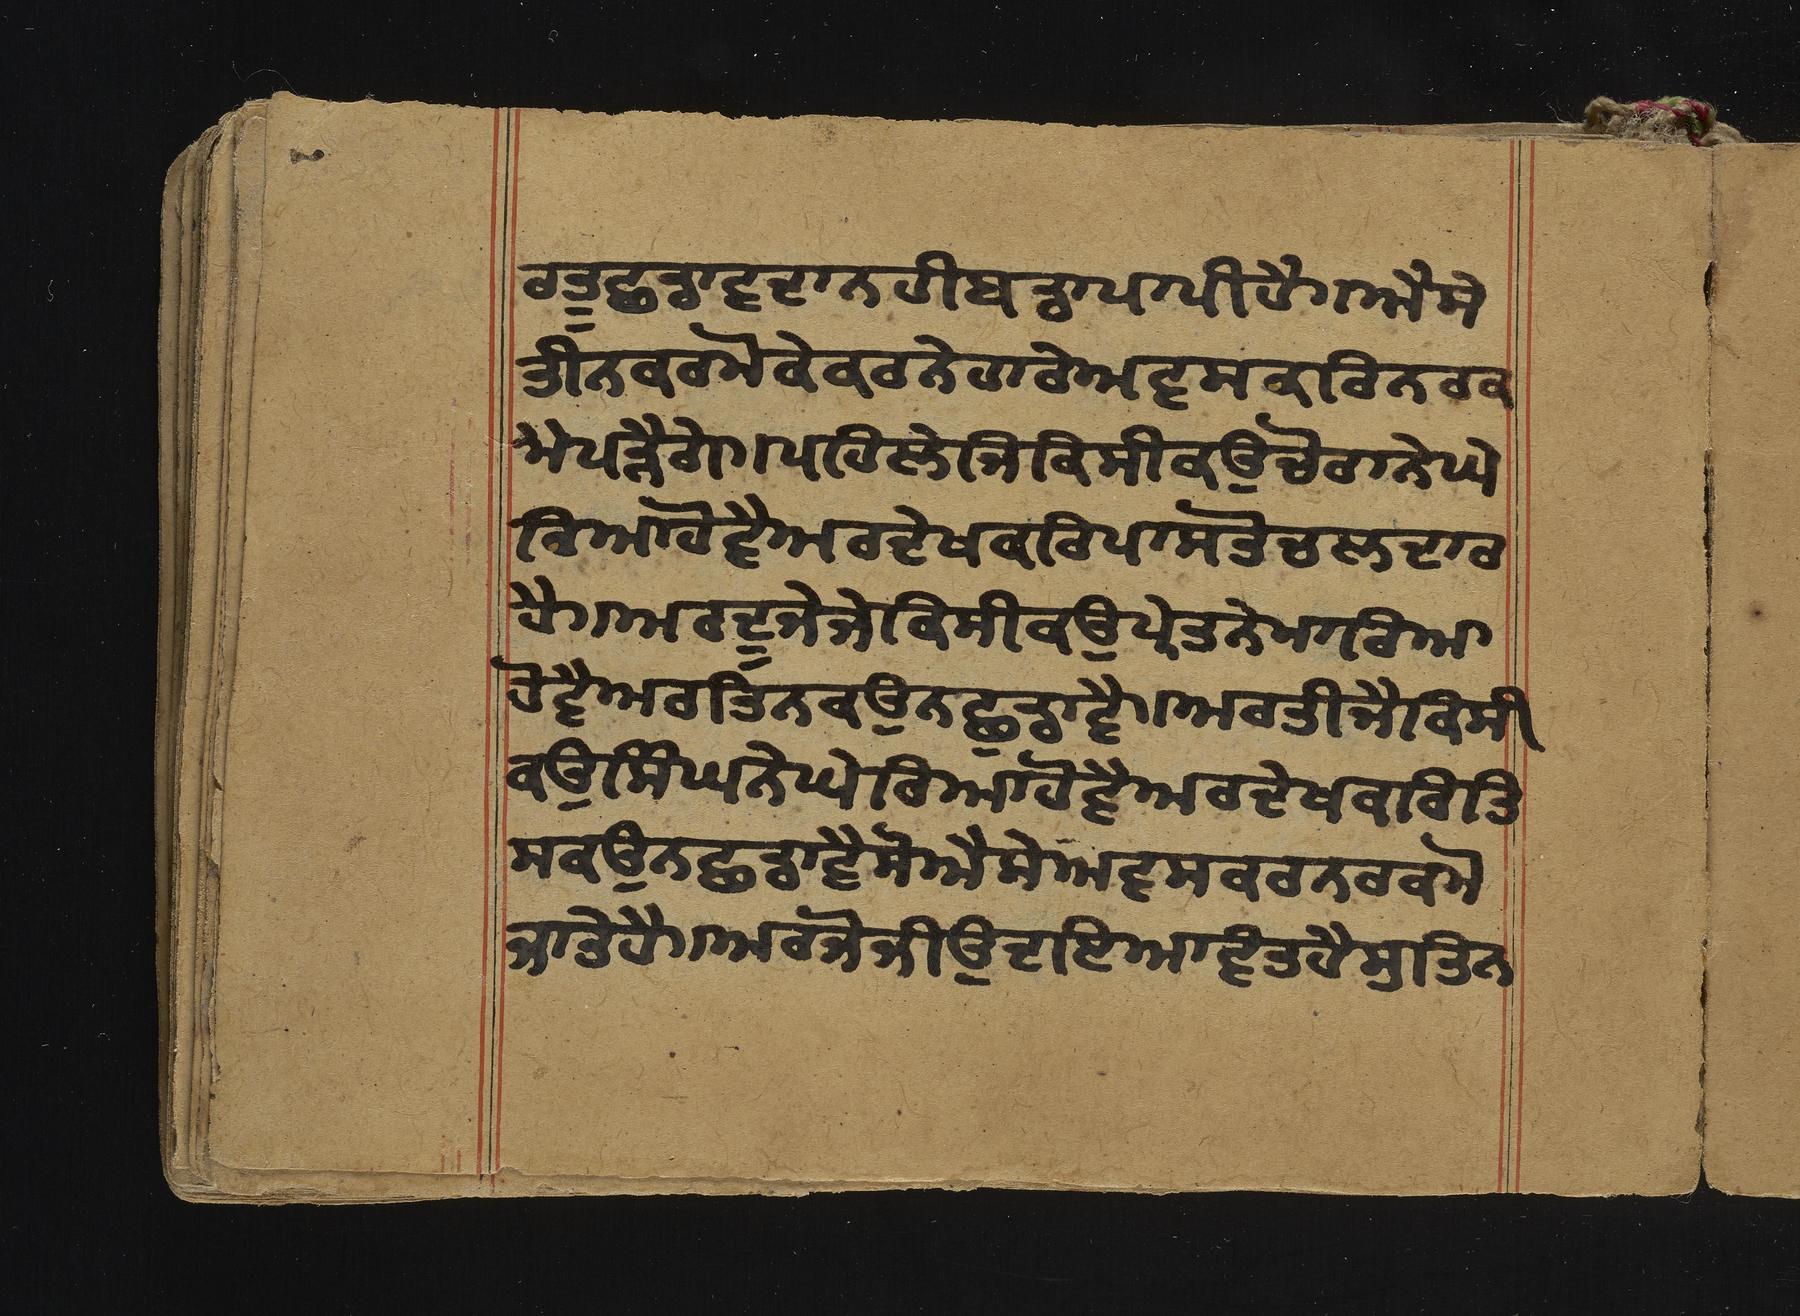 ਰਤੂਛਡਾਵਦਾਨਹੀਬਡਾਪਾਪੀਹੈ॥ਐਸੇ
ਤੀਨਕਰਮੋਕੇਕਰਨੇਹਾਰੇਅਵਸਕਰਿਨਰਕ
ਮੇਪੜੈਗੇ॥ਪਹਿਲੇਜਿਕਿਸੀਕਉਚੋਰਾਨੇਘੇ
ਰਿਆਹੋਵੈਅਰਦੇਖਕਰਿਪਾਸਤੋਚਲਦਾਰ
ਹੈ॥ਅਰਦੂਜੇਜੇਕਿਸੀਕਉਪ੍ਰੇਤਨੇਮਾਰਿਆ
ਹੋਵੈਅਰਤਿਨਕਉਨਛੁਡਾਵੈ॥ਅਰਤੀਜੈਕਿਸੀ
ਕਉਸਿੰਘਨੇਘੇਰਿਆਹੋਵੈਅਰਦੇਖਕਰਿਤਿ
ਸਕਉਨਛਡਾਵੈਸੋਐਸੇਅਵਸਕਰਨਰਕਮੋ
ਜਾਤੇਹੈ॥ਅਰਜੋਜੀਉਦਇਆਵੰਤਹੈਸੁਤਿਨ